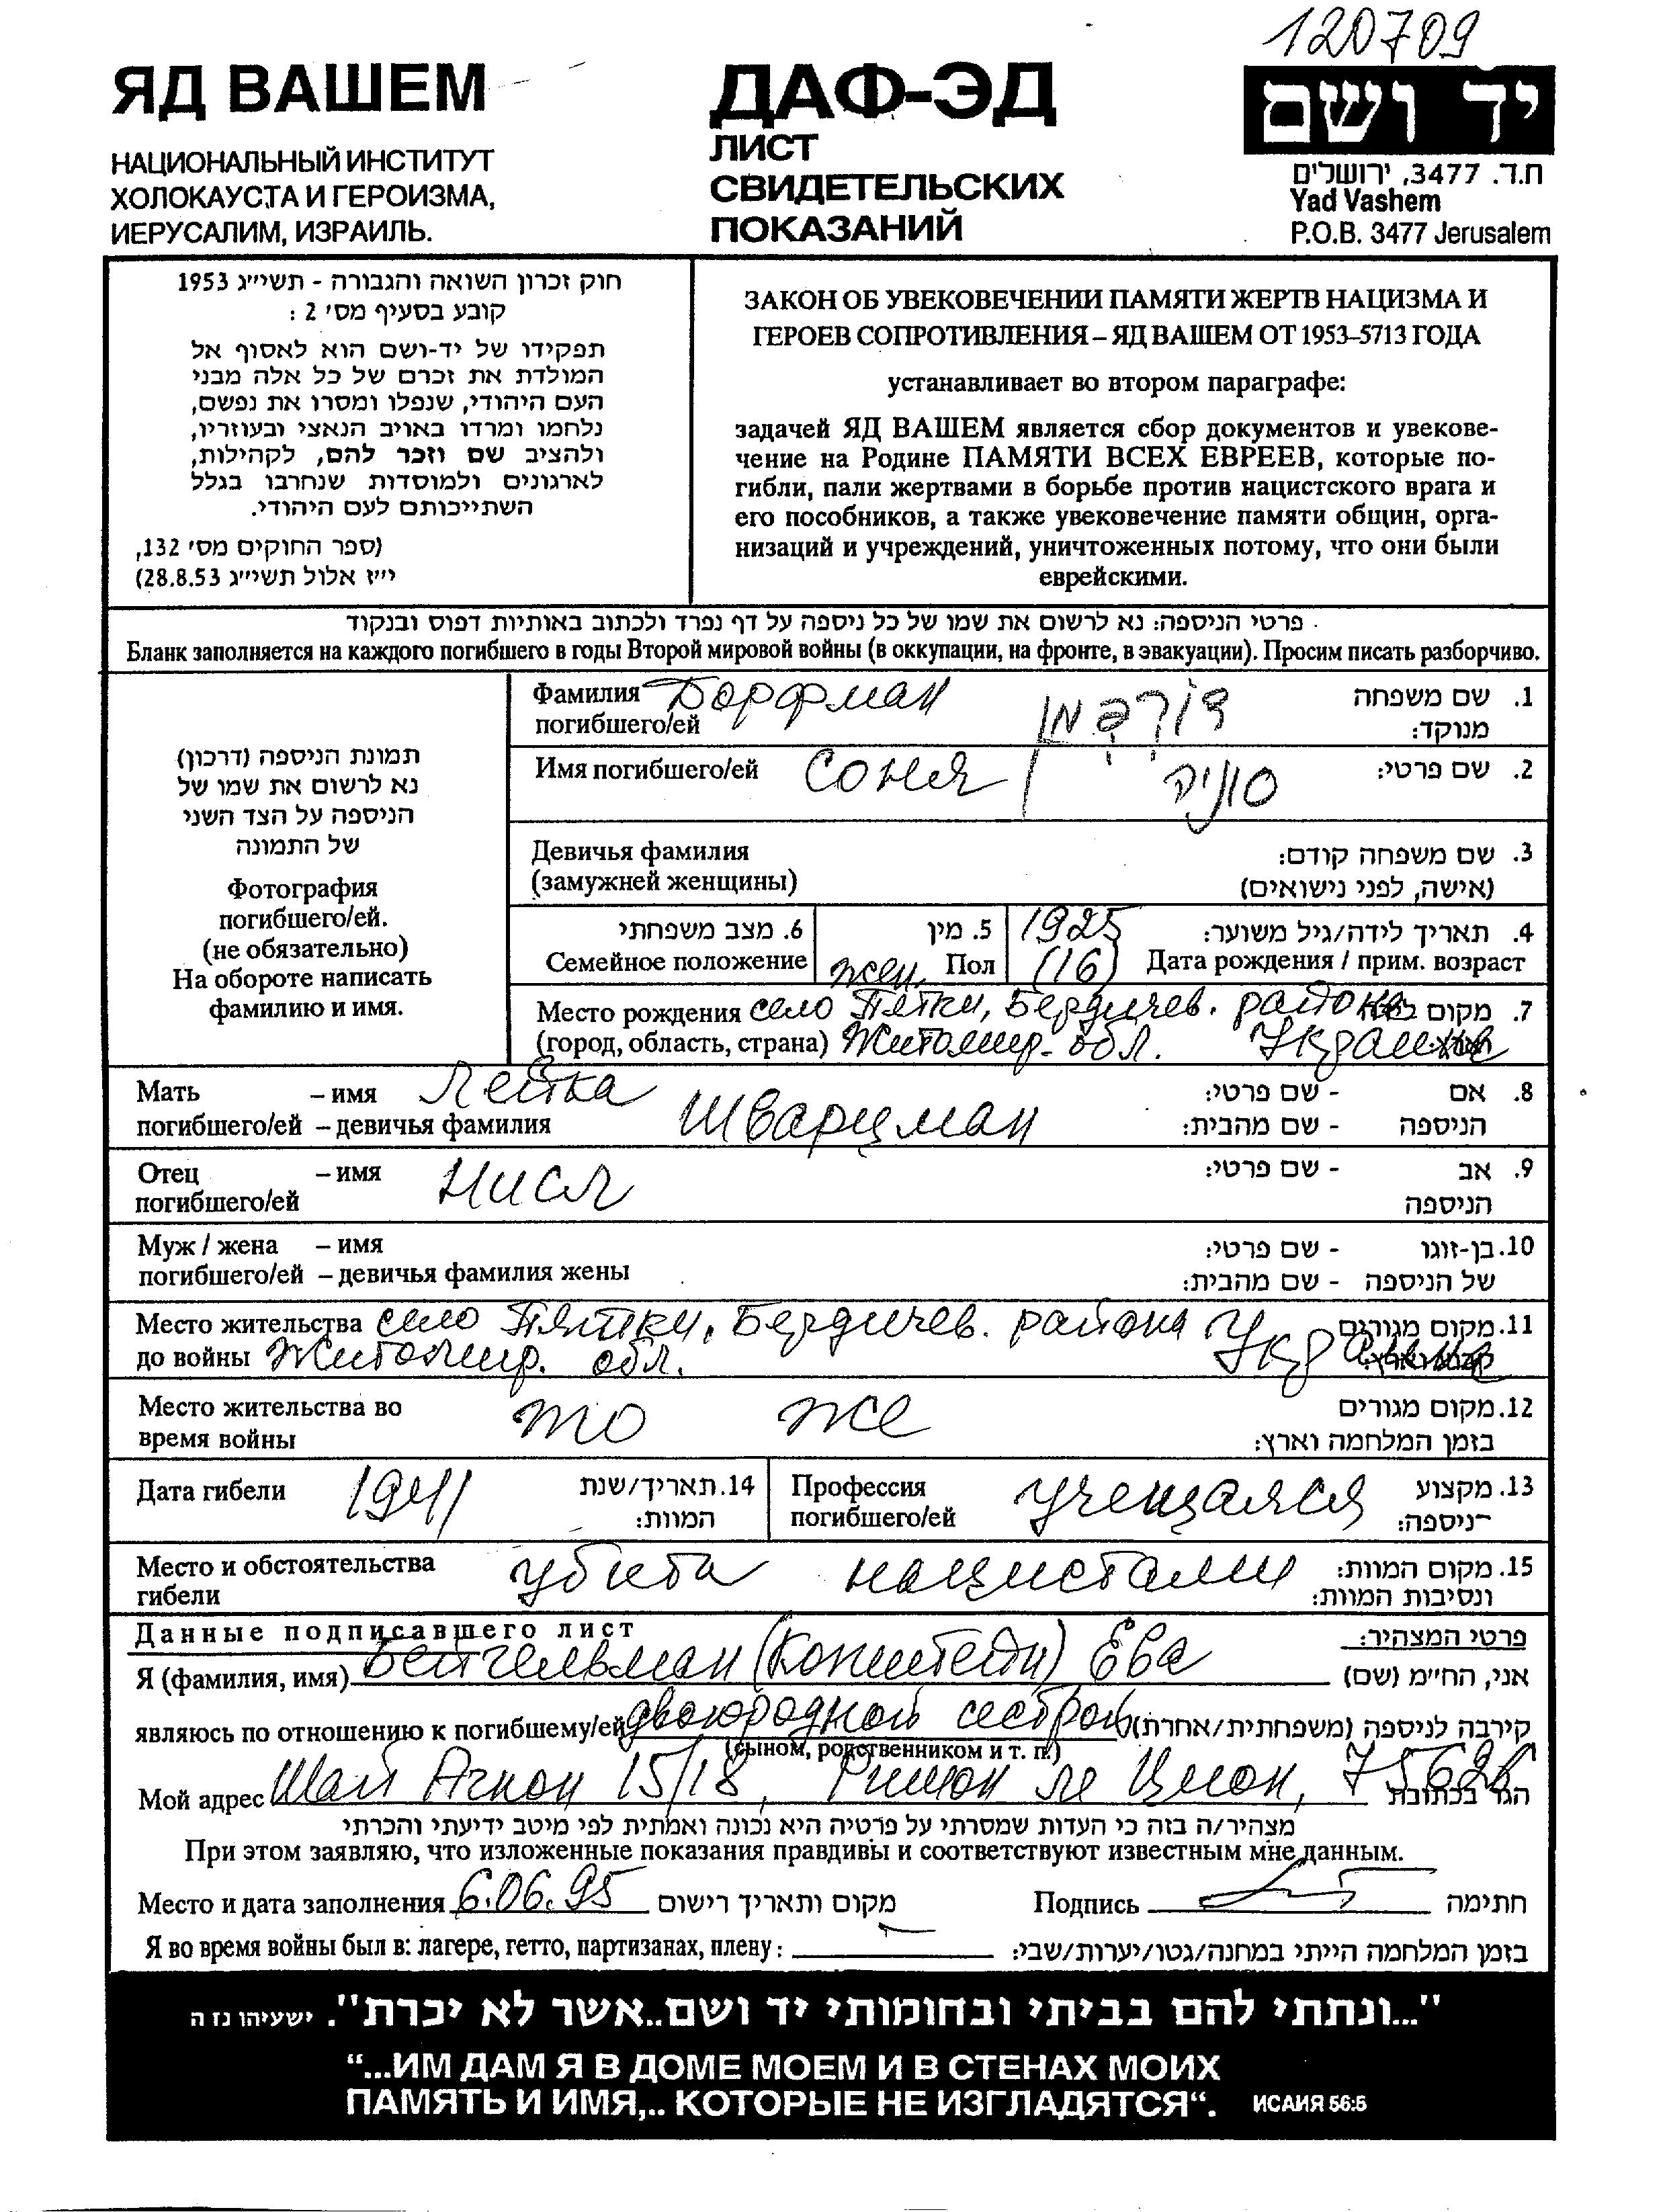 120709
ЯД ВАШЕМ
НАЦИОНАЛЬНЫЙ ИНСТИТУТ
ХОЛОКАУСТА И ГЕРОИЗМА,
ИЕРУСАЛИМ, ИЗРАИЛЬ.
ДАФ-ЭД
ЛИСТ
СВИДЕТЕЛЬСКИХ
ПОКАЗАНИЙ
יד ושם
ת.ד. 3477, ירושלים
Yad Vashem
P.O.B. 3477 Jerusalem
חוק זכרון השואה והגבורה - תשי״ג 1953
קובע בסעיף מס׳ 2 :
תפקידו של יד-ושם הוא לאסוף אל
המולדת את זכרם של כל אלה מבני
העם היהודי, שנפלו ומסרו את נפשם,
נלחמו ומרדו באויב הנאצי ובעוזריו,
ולהציב שם וזכר להם, לקהילות,
לארגונים ולמוסדות שנחרבו בגלל
השתייכותם לעם היהודי.
(ספר החוקים מס׳ 132,
י״ז אלול תשי״ג 28.8.53)
ЗАКОН ОБ УВЕКОВЕЧЕНИИ ПАМЯТИ ЖЕРТВ НАЦИЗМА И
ГЕРОЕВ СОПРОТИВЛЕНИЯ – ЯД ВАШЕМ ОТ 1953–5713 ГОДА
устанавливает во втором параграфе:
задачей ЯД ВАШЕМ является сбор документов и увекове-
чение на Родине ПАМЯТИ ВСЕХ ЕВРЕЕВ, которые по-
гибли, пали жертвами в борьбе против нацистского врага и
его пособников, а также увековечение памяти общин, орга-
низаций и учреждений, уничтоженных потому, что они были
еврейскими.
פרטי הניספה: נא לרשום את שמו של כל ניספה על דף נפרד ולכתוב באותיות דפוס ובנקוד
Бланк заполняется на каждого погибшего в годы Второй мировой войны (в оккупации, на фронте, в эвакуации). Просим писать разборчиво.
תמונת הניספה (דרכון)
נא לרשום את שמו של
הניספה על הצד השני
של התמונה
Фотография
погибшего/ей.
(не обязательно)
На обороте написать
фамилию и имя.
Фамилия Дорфман דוֹרְפְמַן 1. שם משפחה
погибшего/ей מנוקד:
Имя погибшего/ей Соня סוניה 2. שם פרטי:
Девичья фамилия 3. שם משפחה קודם:
(замужней женщины) (אישה, לפני נישואים)
6. מצב משפחתי 5. מין 1925 4. תאריך לידה/גיל משוער:
Семейное положение жен. Пол (16) Дата рождения / прим. возраст
Место рождения село Пятки, Бердичев. района 7. מקום
(город, область, страна) Житомир. обл. Украина
Мать – имя Лейка 8. אם - שם פרטי:
погибшего/ей – девичья фамилия Шварцман הניספה - שם מהבית:
Отец – имя Нисл 9. אב - שם פרטי:
погибшего/ей הניספה
Муж / жена – имя 10. בן-זוגו - שם פרטי:
погибшего/ей – девичья фамилия жены של הניספה - שם מהבית:
Место жительства село Пятки, Бердичев. района Украина 11. מקום מגורים
до войны Житомир. обл.
Место жительства во то же 12. מקום מגורים
время войны בזמן המלחמה וארץ:
Дата гибели 1941 14. תאריך/שנת המוות:
Профессия погибшего/ей учещаяся 13. מקצוע ניספה:
Место и обстоятельства убита нацистами 15. מקום המוות:
гибели ונסיבות המוות:
Данные подписавшего лист פרטי המצהיר:
Я (фамилия, имя) Бейгельман (Копштейн) Ева אני, הח״מ (שם)
являюсь по отношению к погибшему/ей двоюродной сестрой קירבה לניספה (משפחתית/אחרת)
(сыном, родственником и т. п.)
Мой адрес Шай Агнон 15/18, Ришон ле Цион, הגר בכתובת
מצהיר/ה בזה כי העדות שמסרתי על פרטיה היא נכונה ואמתית לפי מיטב ידיעתי והכרתי
При этом заявляю, что изложенные показания правдивы и соответствуют известным мне данным.
Место и дата заполнения 6.06.95 מקום ותאריך רישום Подпись חתימה
Я во время войны был в: лагере, гетто, партизанах, плену : בזמן המלחמה הייתי במחנה/גטו/יערות/שבי:
"...ונתתי להם בביתי ובחומותי יד ושם..אשר לא יכרת". ישעיהו נז ה
“...ИМ ДАМ Я В ДОМЕ МОЕМ И В СТЕНАХ МОИХ
ПАМЯТЬ И ИМЯ,.. КОТОРЫЕ НЕ ИЗГЛАДЯТСЯ“. ИСАИЯ 56:5